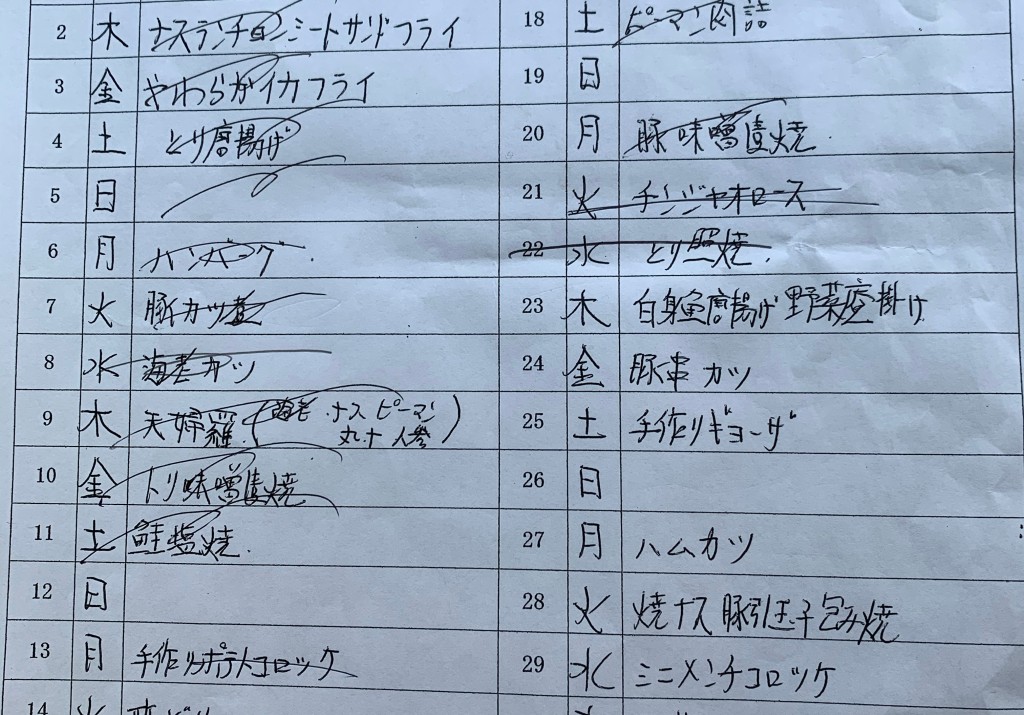 2 木 ナスランチョンミートサンドフライ
3 金 やわらかイカフライ
4 土 とり唐揚げ
5 日
6 月 ハンバーグ
7 火 豚カツ煮
8 水 海老カツ
9 木 天婦羅(海老 ナス ピーマン
丸十 人参)
10 金 トリ味噌漬焼
11 土 鮭塩焼
12 日
13 月 手作りポテトコロッケ
14 火
18 土 ピーマン肉詰
19 日
20 月 豚味噌漬焼
21 火 チンジャオロース
22 水 とり照焼
23 木 白身魚唐揚げ野菜庵掛け
24 金 豚串カツ
25 土 手作りギョーザ
26 日
27 月 ハムカツ
28 火 焼ナス 豚引玉子包み焼
29 水 ミニメンチコロッケ